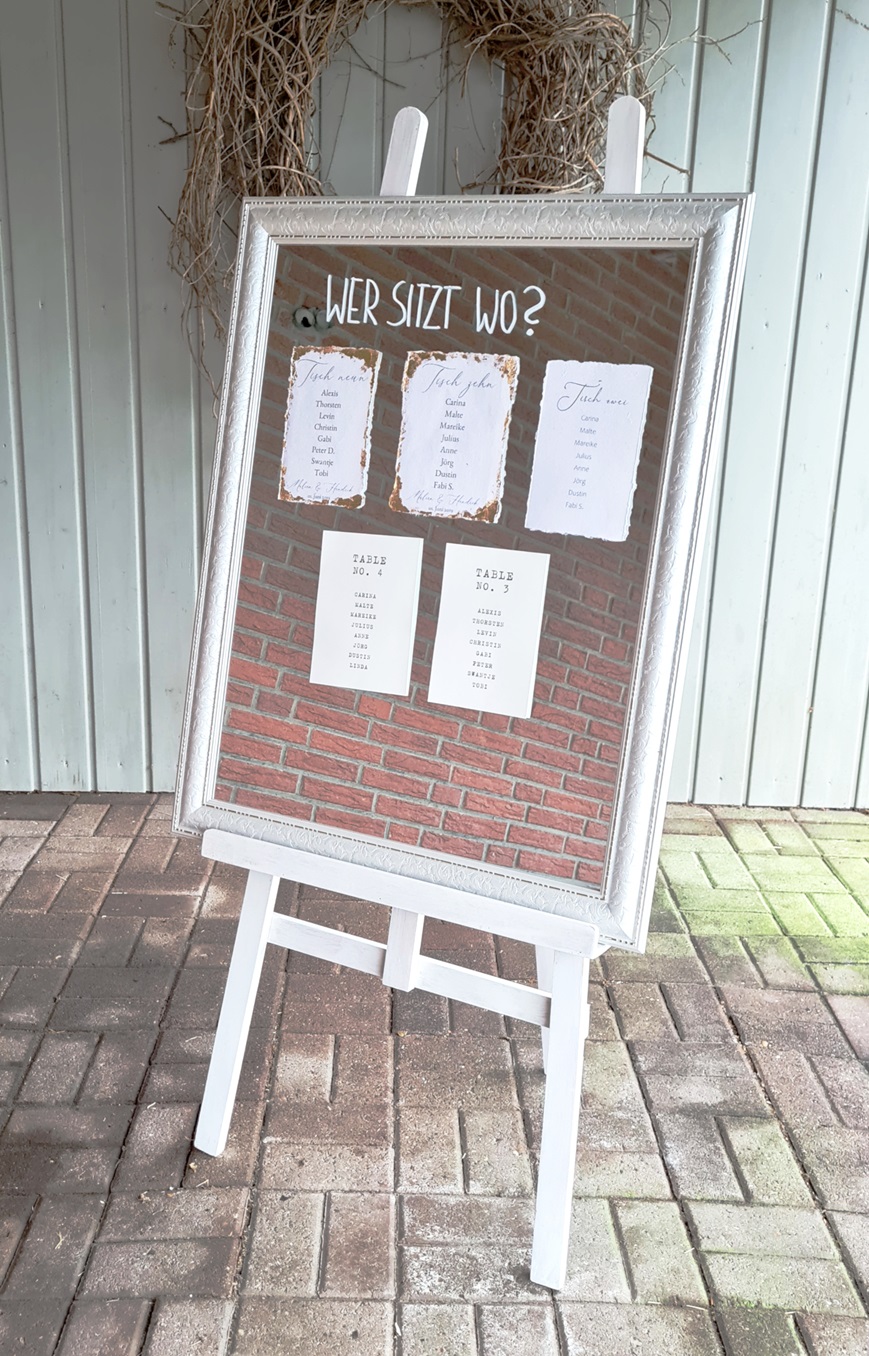 WER SITZT WO?
Tisch neun
Alexis
Thorsten
Levin
Christin
Gabi
Peter D.
Swantje
Tobi
Tisch zehn
Carina
Malte
Mareike
Julius
Anne
Jörg
Dustin
Fabi S.
Tisch zwei
Carina
Malte
Mareike
Julius
Anne
Jörg
Dustin
Fabi S.
TABLE
NO. 4
CARINA
MALTE
MAREIKE
JULIUS
ANNE
JÖRG
DUSTIN
LINDA
TABLE
NO. 3
ALEXIS
THORSTEN
LEVIN
CHRISTIN
GABI
PETER
SWANTJE
TOBI